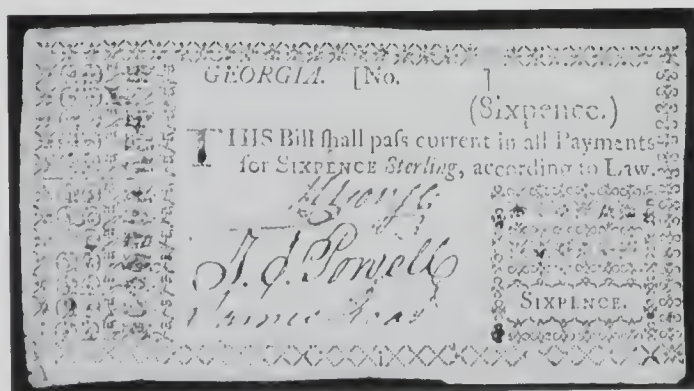 GEORGIA. [No. ]
(Sixpence.)
THIS Bill ſhall paſs current in all Payments
for SIXPENCE Sterling, according to Law.
J. J. Powell
SIXPENCE.